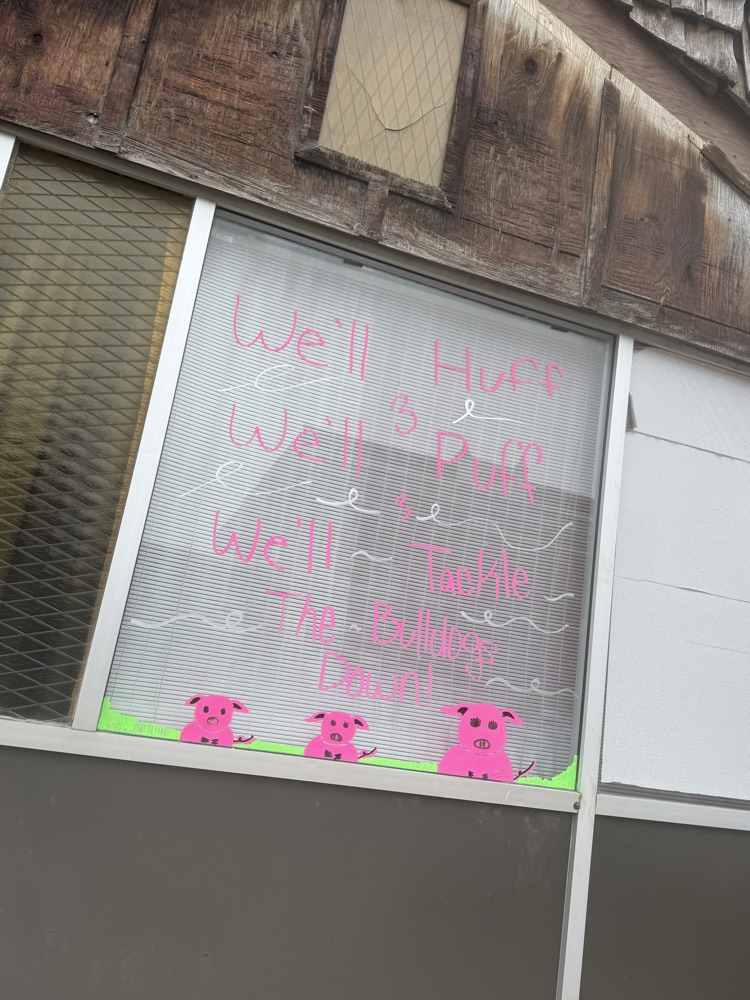 We'll Huff
&
We'll Puff
&
We'll Tackle
The Bulldogs
Down!